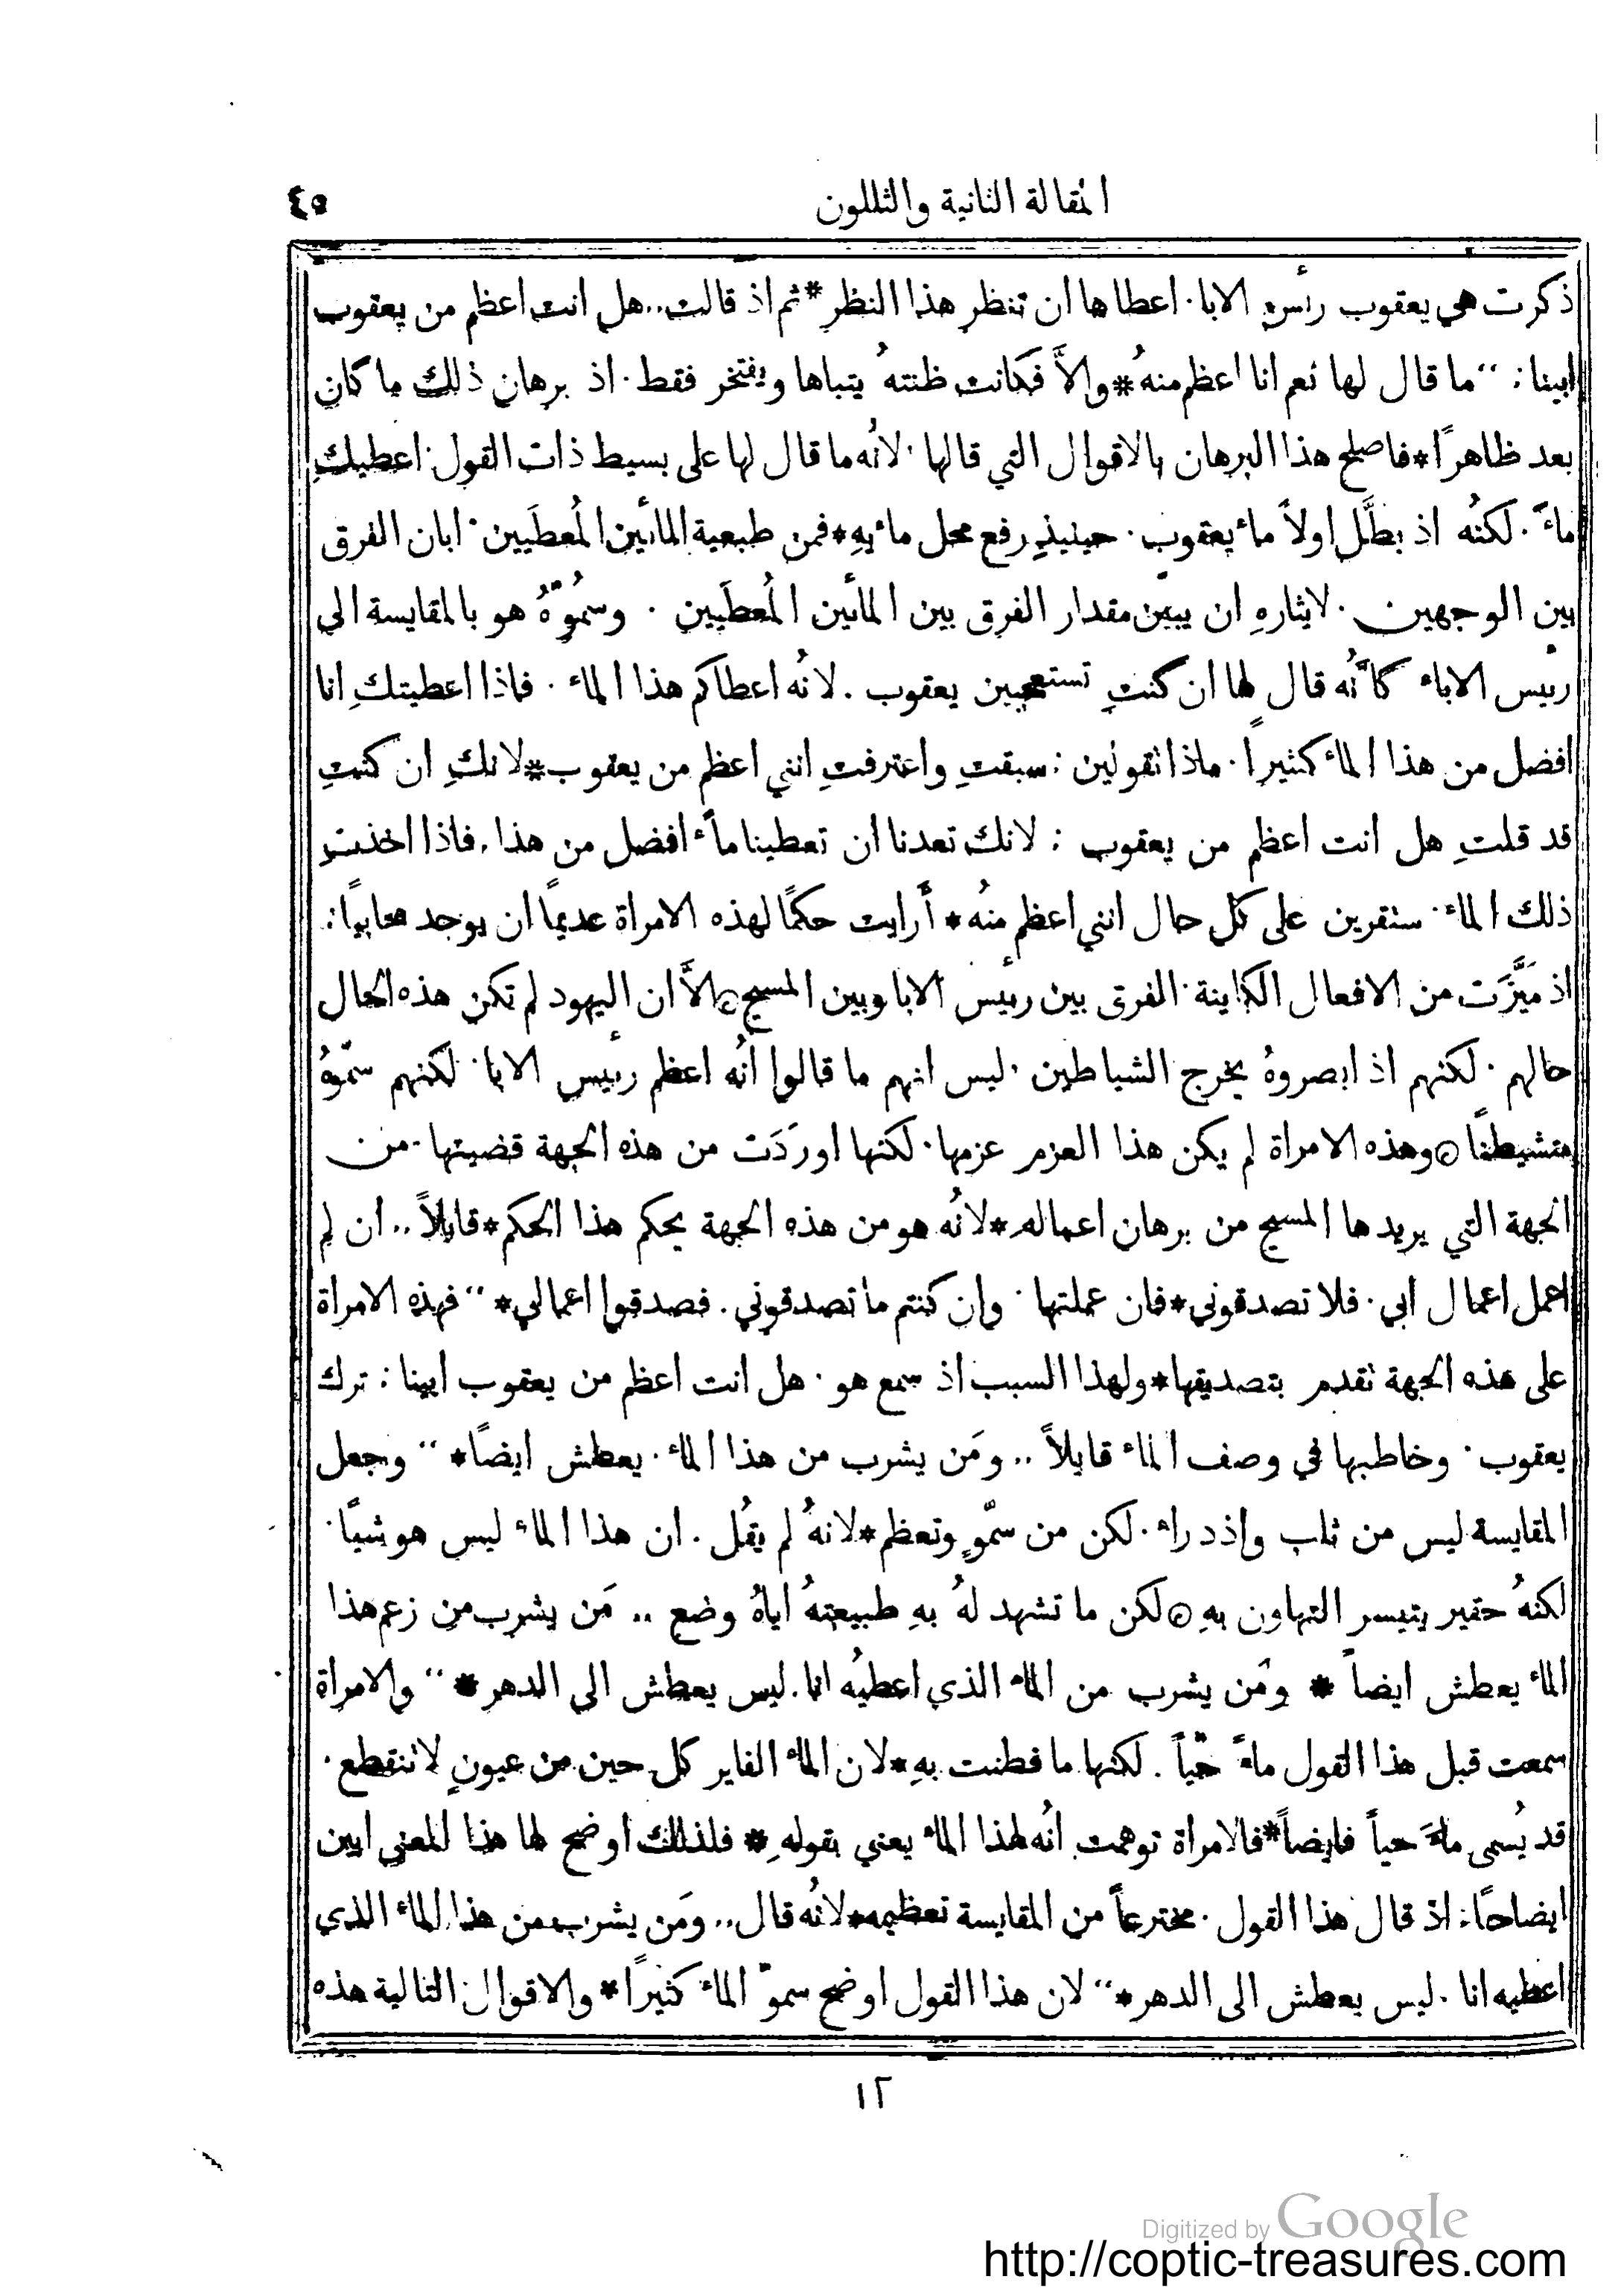 المقالة الثانية والثللون
٤٥
ذكرت هي يعقوب رئس الابا. اعطاها ان تنظر هذا النظر * ثم اذ قالت.. هل انت اعظم من يعقوب
ابينا : ،، ما قال لها نعم انا اعظم منهُ * والاَّ فكانت ظنتهُ يتباها ويفتخر فقط . اذ برهان ذلك ما كان
بعد ظاهرًا * فاصلح هذا البرهان بالاقوال التي قالها . لانُه ما قال لها على بسيط ذات القول . اعطيكِ
ماءً . لكنُه اذ بطَّل اولاً ماء يعقوب . حينيذٍ رفع محل مائهِ * فمن طبعية المائين المُعطَيين . ابان الفرق
بين الوجهين . لايثارهِ ان يبيّن مقدار الفرق بين المائين المُعطَيين . وسمُوّهُ هو بالمقايسة الى
رييس الاباء كاَنُّه قال لها ان كنتِ تستعجبين يعقوب . لانُه اعطاكم هذا الماء . فاذا اعطيتكِ انا
افضل من هذا الماء كثيرًا . ماذا تقولين : سبقتِ واعترفتِ انني اعظم من يعقوب * لانكِ ان كنتِ
قد قلتِ هل انت اعظم من يعقوب : لانك تعدنا ان تعطينا ماءً افضل من هذا . فاذا اخذتِ
ذلك الماء . ستقرين على كل حال انني اعظم منهُ * أَرايت حكمًا لهذه الامراة عديمًا ان يوجد محابيًا :
اذ مَيَّزَت من الافعال الكاينة . الفرق بين رييس الابا وبين المسيح ۞ الاَّ ان اليهود لم تكن هذه الحال
حالهم . لكنهم اذ ابصروهُ يخرج الشياطين . ليس انهم ما قالوا انُه اعظم رييس الابا . لكنهم سمّوهُ
متشيطنًا ۞ وهذه الامراة لم يكن هذا العزم عزمها . لكنها اورَدَت من هذه الجهة قضيتها . من
الجهة التي يريدها المسيح من برهان اعماله * لانُه هو من هذه الجهة يحكم هذا الحكم * قايلاً .. ان لم
اعمل اعمال ابي . فلا تصدقوني * فان عملتها . وان كنتم ما تصدقوني . فصدقوا اعمالي * ،، فهذه الامراة
على هذه الجهة تقدم بتصديقها * ولهذا السبب اذ سمع هو . هل انت اعظم من يعقوب ابينا : ترك
يعقوب . وخاطبها في وصف الماء قايلاً .. ومَن يشرب من هذا الماء . يعطش ايضًا * ،، وجعل
المقايسة ليس من ثلب واذدراء . لكن من سمّوٍ وتعظم * لانهُ لم يقُل . ان هذا الماء ليس هو شيًا .
لكنهُ حقير يتيسر التهاون بهِ ۞ لكن ما تشهد لهُ بهِ طبيعتهُ اياهُ وضع .. مَن يشرب من زعم هذا
الماء يعطش ايضاً * ومَن يشرب من الماء الذي اعطيُه انا . ليس يعطش الى الدهر * ،، والامراة
سمعت قبل هذا القول ماءً حيّاً . لكنها ما فطنت بهِ * لان الماء الفاير كل حين من عيونٍ لا تنقطع .
قد يُسمى ماءً حياً فايضاً * فالامراة توهمت انُه لهذا الماء يعني بقولهِ * فلذلك اوضح لها هذا المعنى ابين
ايضاحًا : اذ قال هذا القول . مخترعاً من المقايسة تعظيمه * لانُه قال .. ومَن يشرب من هذا الماء الذي
اعطيه انا . ليس يعطش الى الدهر * ،، لان هذا القول اوضح سموّ الماء كثيرًا * والاقوال التالية هذه
١٢
Digitized by Google
http://coptic-treasures.com